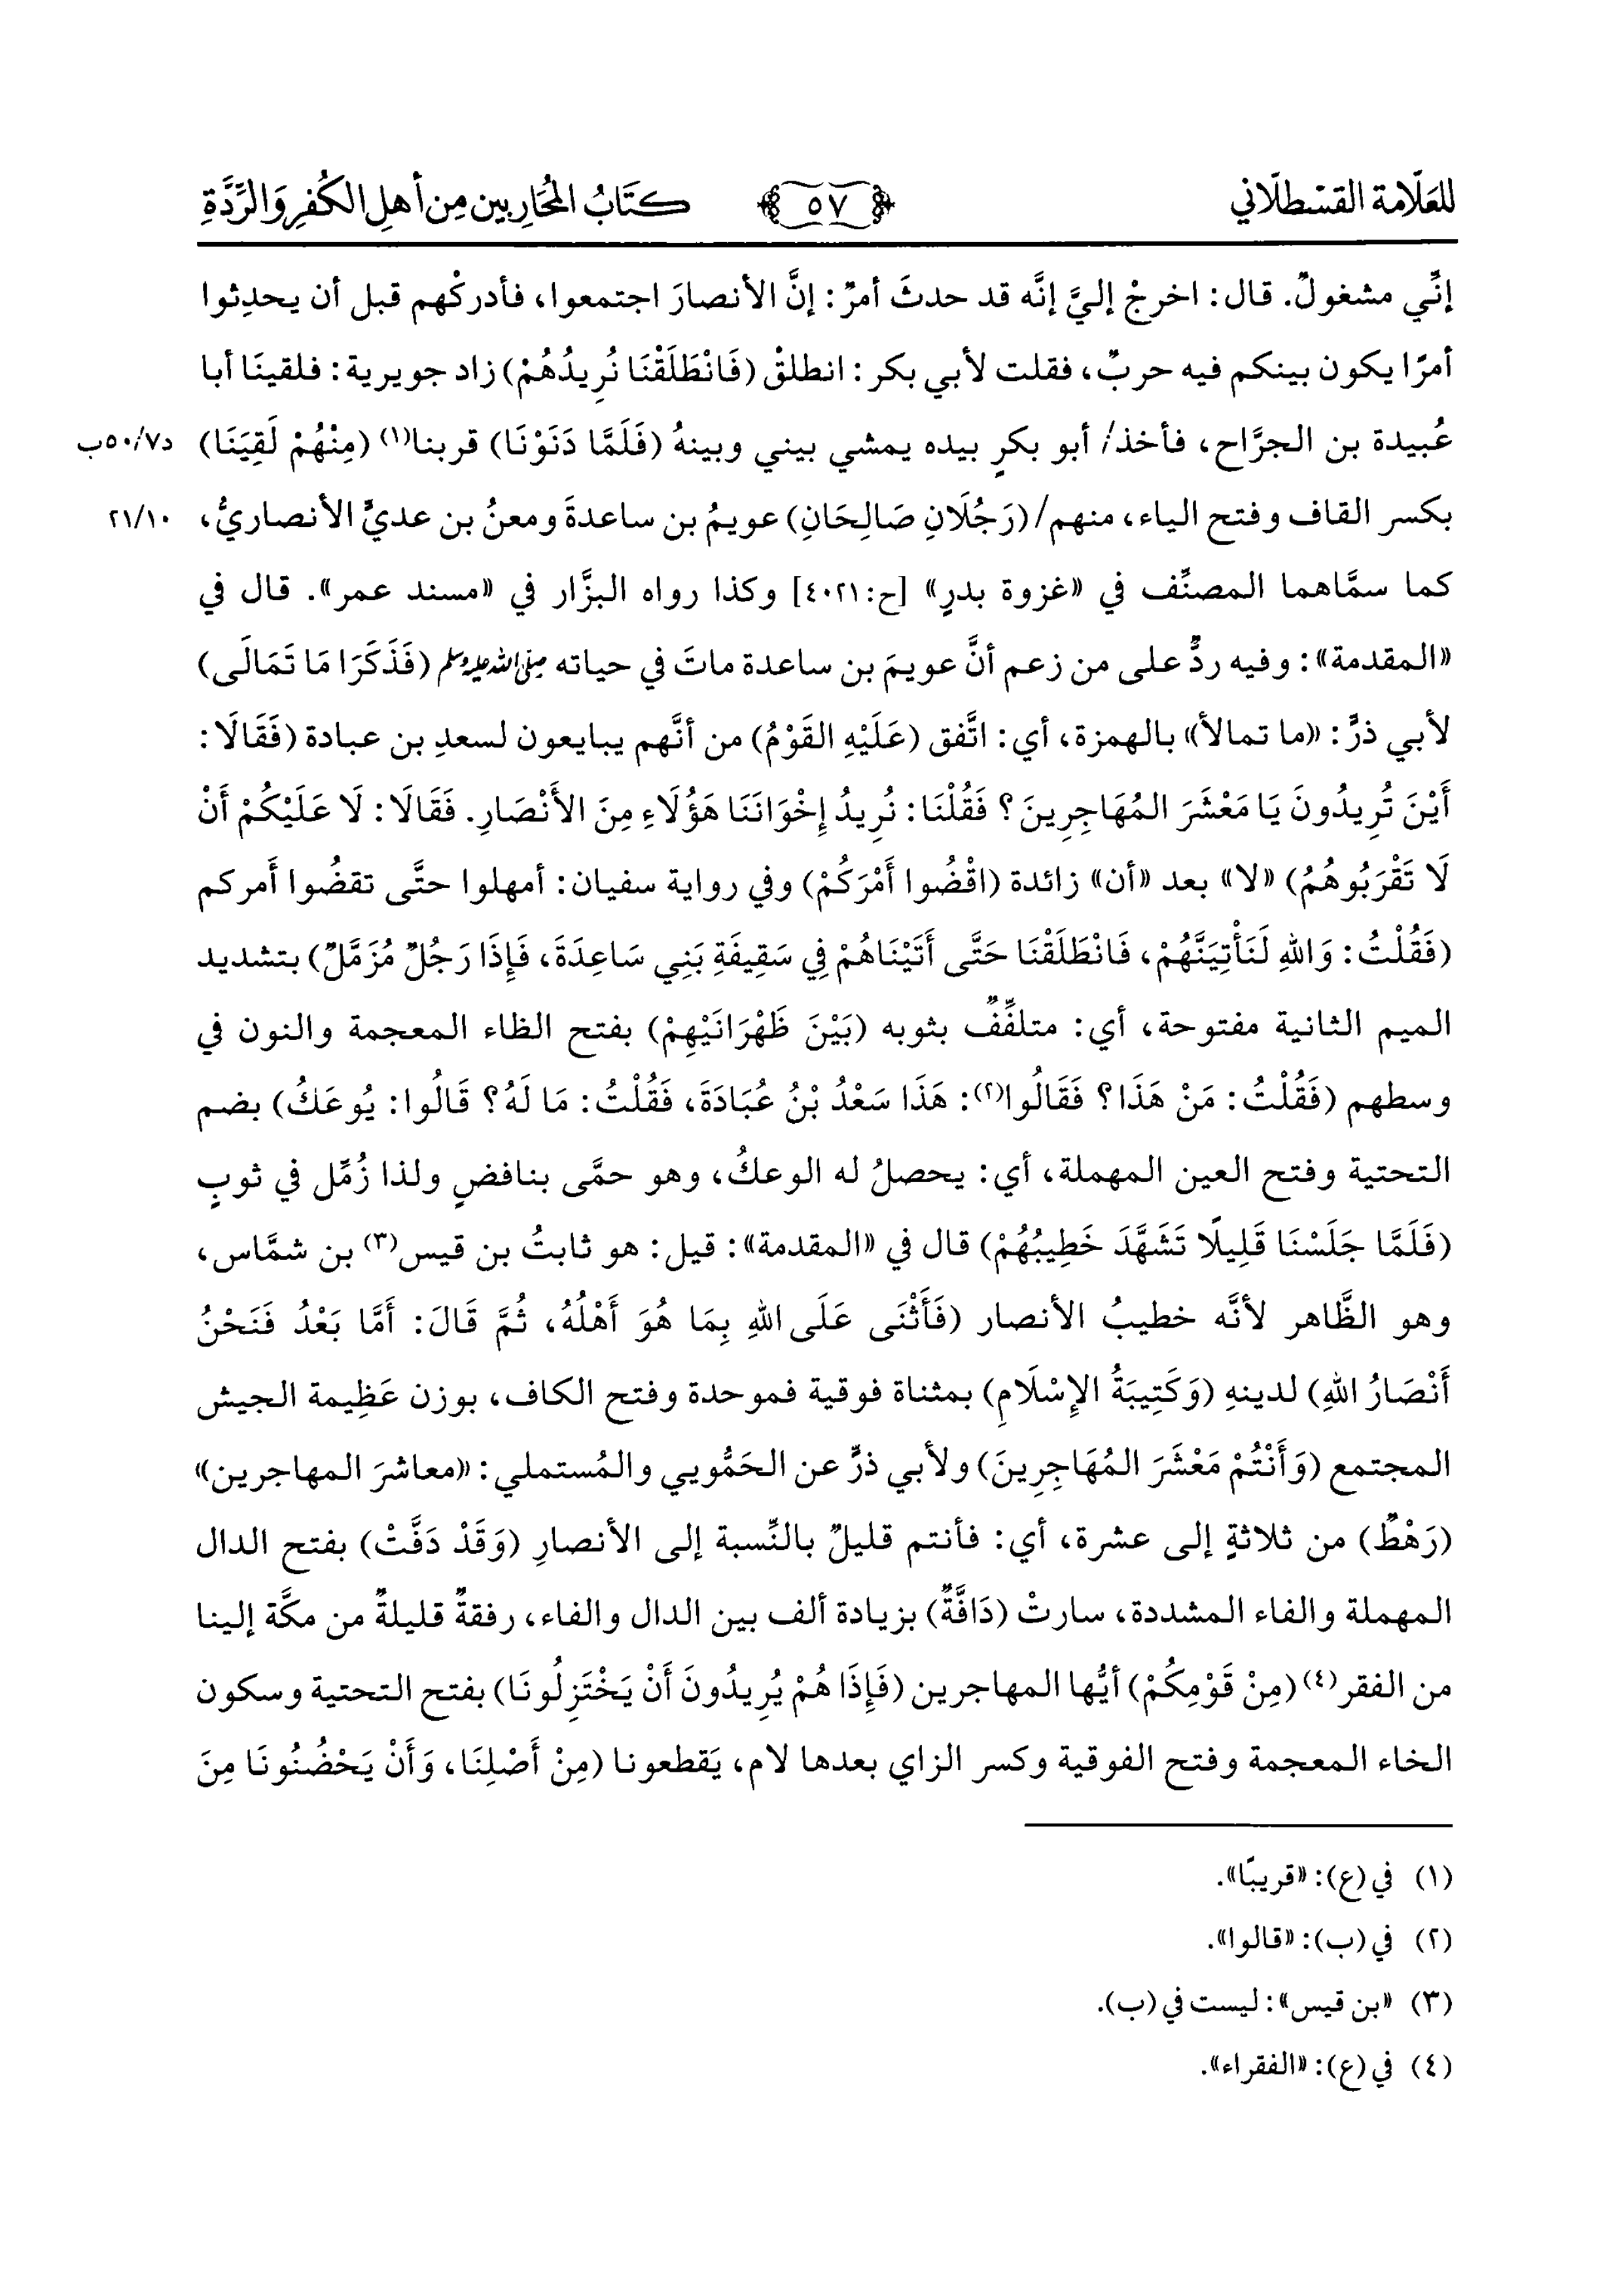 للعلّامة القسطلّاني ٥٧ كتَابُ المحَاربين مِن أهلِ الكُفرِ وَالرِّدَّةِ
إنِّي مشغولٌ. قال: اخرجْ إليَّ إنَّه قد حدثَ أمرٌ: إنَّ الأنصارَ اجتمعوا، فأدركْهم قبل أن يحدِثوا
أمرًا يكون بينكم فيه حربٌ، فقلت لأبي بكر: انطلقْ (فَانْطَلَقْنَا نُرِيدُهُمْ) زاد جويرية: فلقينَا أبا
عُبيدة بن الجرَّاح، فأخذ/ أبو بكرٍ بيده يمشي بيني وبينهُ (فَلَمَّا دَنَوْنَا) قربنا(١) (مِنْهُمْ لَقِيَنَا) د٥٠/٧ب
بكسر القاف وفتح الياء، منهم/ (رَجُلَانِ صَالِحَانِ) عويمُ بن ساعدةَ ومعنُ بن عديٍّ الأنصاريُّ، ٢١/١٠
كما سمَّاهما المصنِّف في «غزوة بدرٍ» [ح:٤٠٢١] وكذا رواه البزَّار في «مسند عمر». قال في
«المقدمة»: وفيه ردٌّ على من زعم أنَّ عويمَ بن ساعدة ماتَ في حياته صلى الله عليه وسلم (فَذَكَرَا مَا تَمَالَى)
لأبي ذرٍّ: «ما تمالأ» بالهمزة، أي: اتَّفق (عَلَيْهِ القَوْمُ) من أنَّهم يبايعون لسعدِ بن عبادة (فَقَالَا:
أَيْنَ تُرِيدُونَ يَا مَعْشَرَ المُهَاجِرِينَ؟ فَقُلْنَا: نُرِيدُ إِخْوَانَنَا هَؤُلَاءِ مِنَ الأَنْصَارِ. فَقَالَا: لَا عَلَيْكُمْ أَنْ
لَا تَقْرَبُوهُمُ) «لا» بعد «أن» زائدة (اقْضُوا أَمْرَكُمْ) وفي رواية سفيان: أمهلوا حتَّى تقضُوا أَمركم
(فَقُلْتُ: وَاللهِ لَنَأْتِيَنَّهُمْ، فَانْطَلَقْنَا حَتَّى أَتَيْنَاهُمْ فِي سَقِيفَةِ بَنِي سَاعِدَةَ، فَإِذَا رَجُلٌ مُزَمَّلٌ) بتشديد
الميم الثانية مفتوحة، أي: متلفِّفٌ بثوبه (بَيْنَ ظَهْرَانَيْهِمْ) بفتح الظاء المعجمة والنون في
وسطهم (فَقُلْتُ: مَنْ هَذَا؟ فَقَالُوا(٢): هَذَا سَعْدُ بْنُ عُبَادَةَ، فَقُلْتُ: مَا لَهُ؟ قَالُوا: يُوعَكُ) بضم
التحتية وفتح العين المهملة، أي: يحصلُ له الوعكُ، وهو حمَّى بنافضٍ ولذا زُمِّل في ثوبٍ
(فَلَمَّا جَلَسْنَا قَلِيلًا تَشَهَّدَ خَطِيبُهُمْ) قال في «المقدمة»: قيل: هو ثابتُ بن قيس(٣) بن شمَّاس،
وهو الظَّاهر لأنَّه خطيبُ الأنصار (فَأَثْنَى عَلَى اللهِ بِمَا هُوَ أَهْلُهُ، ثُمَّ قَالَ: أَمَّا بَعْدُ فَنَحْنُ
أَنْصَارُ اللهِ) لدينهِ (وَكَتِيبَةُ الإِسْلَامِ) بمثناة فوقية فموحدة وفتح الكاف، بوزن عَظِيمة الجيش
المجتمع (وَأَنْتُمْ مَعْشَرَ المُهَاجِرِينَ) ولأبي ذرٍّ عن الحَمُّويي والمُستملي: «معاشرَ المهاجرين»
(رَهْطٌ) من ثلاثةٍ إلى عشرة، أي: فأنتم قليلٌ بالنِّسبة إلى الأنصارِ (وَقَدْ دَفَّتْ) بفتح الدال
المهملة والفاء المشددة، سارتْ (دَافَّةٌ) بزيادة ألف بين الدال والفاء، رفقةٌ قليلةٌ من مكَّة إلينا
من الفقر(٤) (مِنْ قَوْمِكُمْ) أيُّها المهاجرين (فَإِذَا هُمْ يُرِيدُونَ أَنْ يَخْتَزِلُونَا) بفتح التحتية وسكون
الخاء المعجمة وفتح الفوقية وكسر الزاي بعدها لام، يَقطعونا (مِنْ أَصْلِنَا، وَأَنْ يَحْضُنُونَا مِنَ
(١) في (ع): «قريبًا».
(٢) في (ب): «قالوا».
(٣) «بن قيس»: ليست في (ب).
(٤) في (ع): «الفقراء».